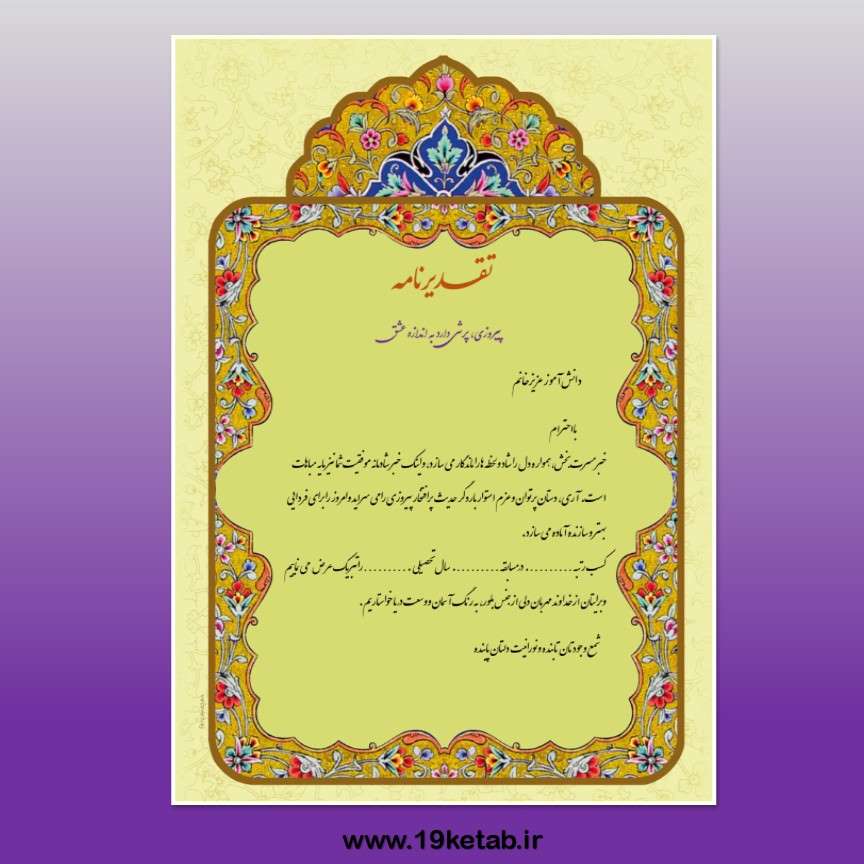 تقدیرنامه
پیروزی، پرشی دارد به اندازه عشق
دانش آموز عزیز خانم
با احترام
خبر مسرت بخش، همواره دل را شاد و لحظه ها را ماندگار می سازد. و اینک خبر شادمانه موفقیت شما نیز مایه مباهات
است. آری، دستان پر توان و عزم استوار بار دگر حدیث پر افتخار پیروزی را می سراید و امروز را برای فردایی
بهتر و سازنده آماده می سازد.
کسب رتبه.......... در مسابقه.......... سال تحصیلی..........را تبریک عرض می نماییم
و برایتان از خداوند مهربان دلی از جنس بلور، به رنگ آسمان و وسعت دریا خواستاریم.
شمع وجودتان تابنده و نورانیت دلتان پاینده
www.19ketab.ir